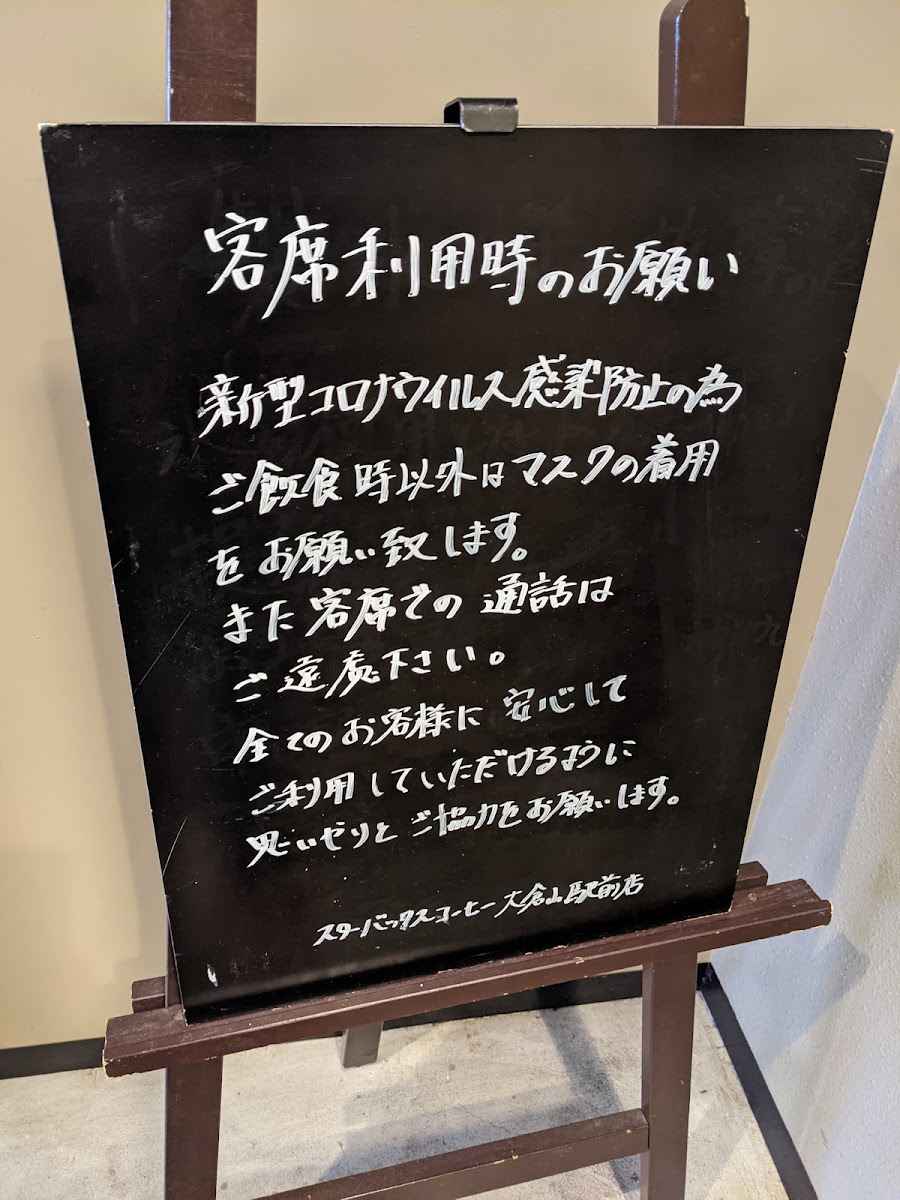 客席利用時のお願い
新型コロナウイルス感染防止の為
ご飲食時以外はマスクの着用
をお願い致します。
また客席での通話は
ご遠慮下さい。
全てのお客様に安心して
ご利用していただけるように
思いやりとご協力をお願いします。
スターバックスコーヒー大倉山駅前店